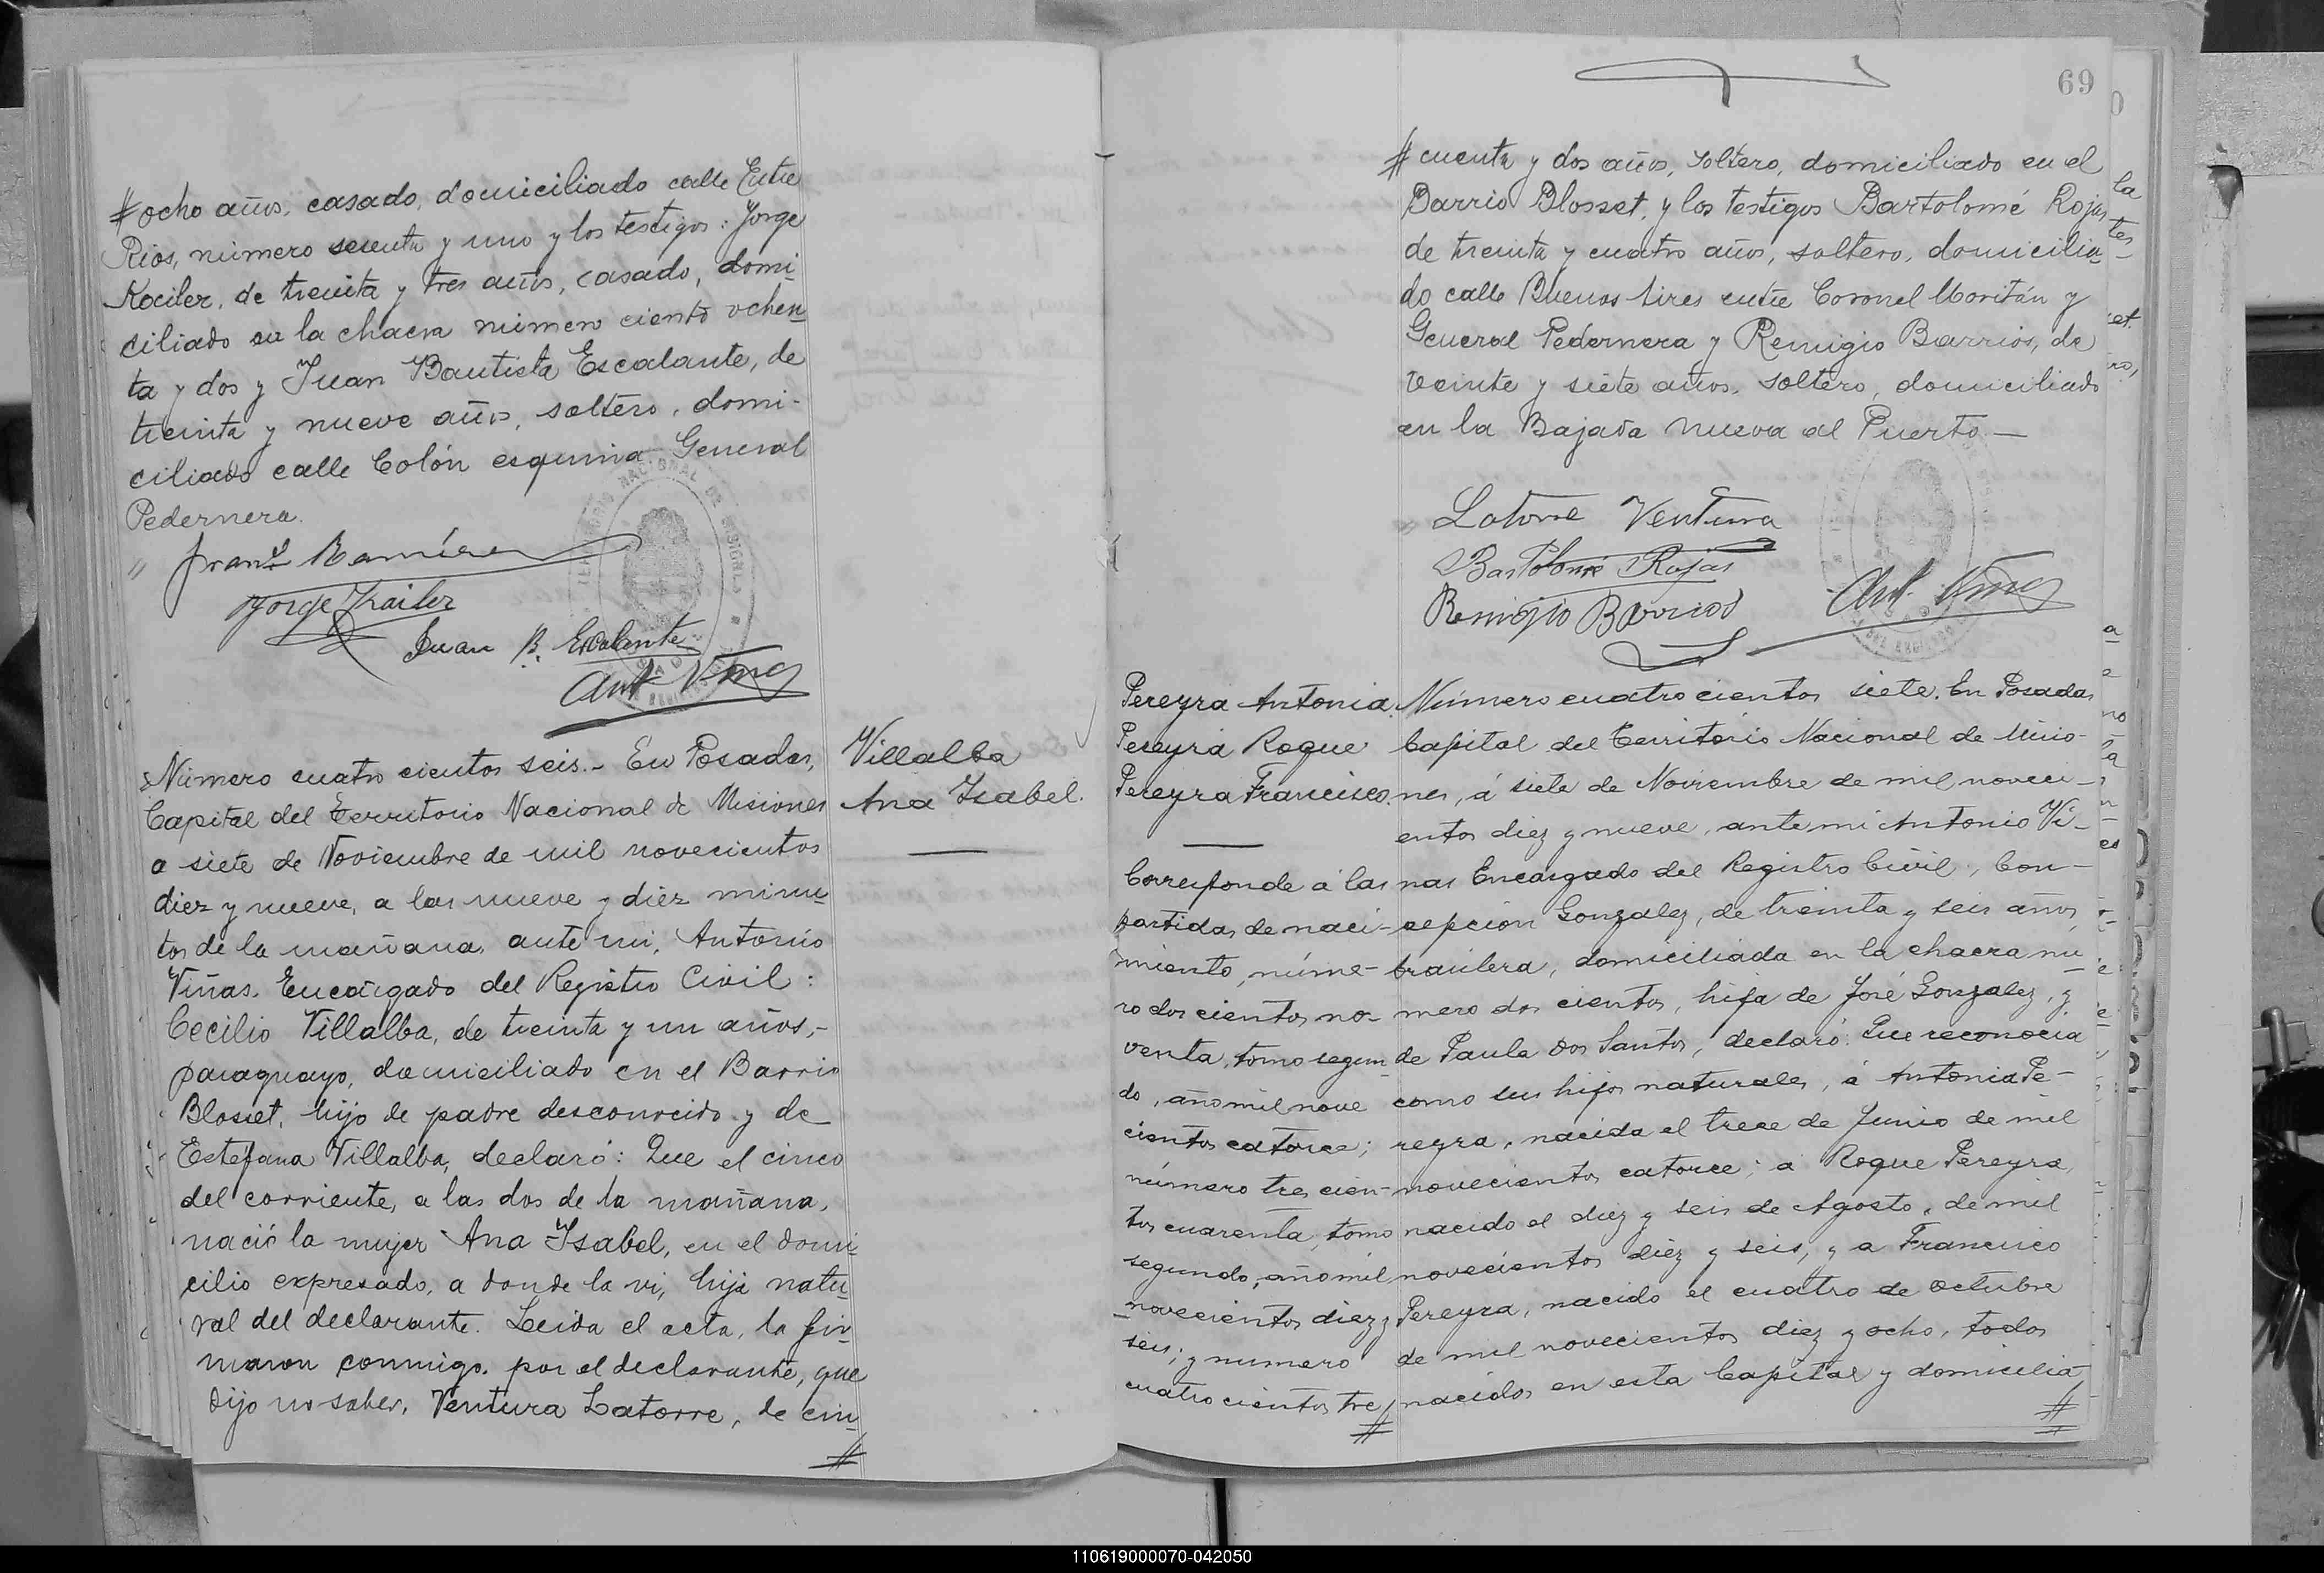 # ocho años, casado, domiciliado calle Entre
Rios, número sesenta y uno y los testigos: Jorge
Kociler, de treinta y tres años, casado, domi-
ciliado en la chacra número ciento ochen
ta y dos y Juan Bautista Escalante, de
treinta y nueve años, soltero, domi-
ciliado calle Colón esquina General
Pedernera.
Juan B. Escalante
Número cuatro cientos seis.- En Posadas,
Capital del Territorio Nacional de Misiones
a siete de Noviembre de mil novecientos
diez y nueve, a las nueve y diez minu
tos de la mañana, ante mi, Antonio
Viñas, Encargado del Registro Civil:
Cecilio Villalba, de treinta y un años,-
paraguayo, domiciliado en el Barrio
Blosset, hijo de padre desconocido y de
Estefana Villalba, declaró: Que el cinco
del corriente, a las dos de la mañana,
nació la mujer Ana Isabel, en el domi
cilio expresado, a donde la vi, hija natu
ral del declarante. Leida el acta, la fir
maron conmigo, por el declarante, que
dijo no saber, Ventura Latorre, de cin
#
Villalba
Ana Isabel.
69
# cuenta y dos años, soltero, domiciliado en el
Barrio Blosset, y los testigos Bartolomé Rojas
de treinta y cuatro años, soltero, domicilia
do calle Buenos Aires entre Coronel Moritán y
General Pedernera y Remigio Barrios, de
veinte y siete años, soltero, domiciliado
en la Bajada nueva al Puerto —
Latorre Ventura
Bartolomé Rojas
Remigio Barrios
Pereyra Antonia.
Pereyra Roque
Pereyra Francisco.
Corresponde á las
partidas de naci-
miento, núme-
ro dos cientos no-
venta, tomo segun
do, año mil nove
cientos catorce;
número tres cien-
tos cuarenta, tomo
segundo, año mil
novecientos diez y
seis; y numero
cuatro cientos tre
#
Número cuatro cientos siete. En Posadas
Capital del Territorio Nacional de Misio-
nes, á siete de Noviembre de mil noveci-
entos diez y nueve, ante mi Antonio Vi-
ñas Encargado del Registro Civil, Con-
cepción Gonzalez, de treinta y seis años,
brasilera, domiciliada en la chacra nu
mero dos cientos, hija de José Gonzalez, y
de Paula dos Santos, declaró: Que reconocia
como sus hijos naturales, á Antonia Pe-
reyra, nacida el trece de Junio de mil
novecientos catorce; a Roque Pereyra,
nacido el diez y seis de Agosto, de mil
novecientos diez y seis, y a Francisco
Pereyra, nacido el cuatro de octubre
de mil novecientos diez y ocho, todos
nacidos en esta Capital y domicilia
#
110619000070-042050